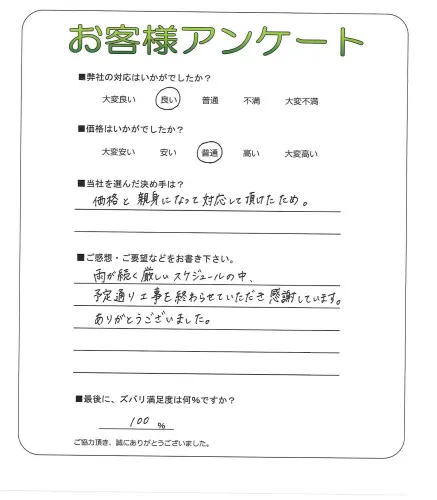 お客様アンケート
■弊社の対応はいかがでしたか？
大変良い 良い 普通 不満 大変不満
■価格はいかがでしたか？
大変安い 安い 普通 高い 大変高い
■当社を選んだ決め手は？
価格と親身になって対応して頂けたため。
■ご感想・ご要望などをお書き下さい。
雨が続く厳しいスケジュールの中、
予定通り工事を終わらせていただき感謝しています。
ありがとうございました。
■最後に、ズバリ満足度は何%ですか？
100 %
ご協力頂き、誠にありがとうございました。